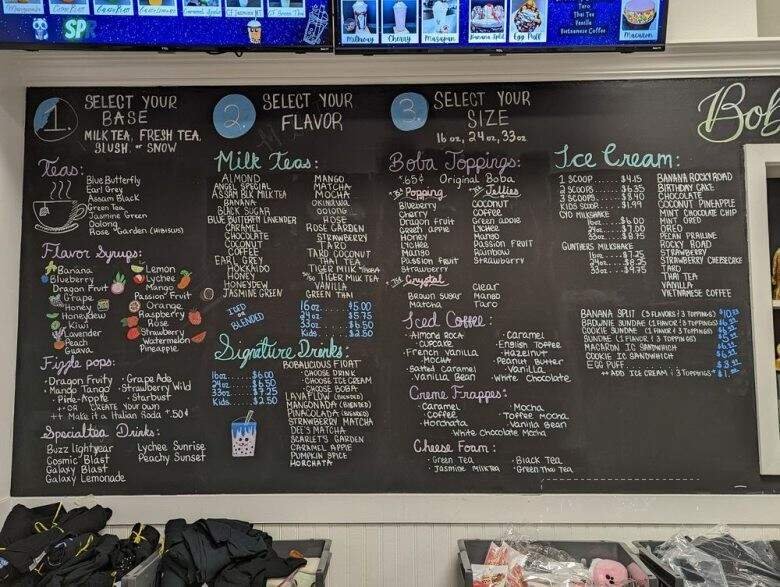 SPR
Milkway
Cherry
Mazapan
Banana Split
Egg Puff
Taro
Thai Tea
Vanilla
Vietnamese Coffee
Macaron
1.
SELECT YOUR
BASE
MILK TEA, FRESH TEA,
SLUSH, OR SNOW
Teas:
Blue Butterfly
Earl Grey
Assam Black
Green Tea
Jasmine Green
Oolong
Rose Garden (HIBISCUS)
Flavor Syrups:
Banana
Blueberry
Dragon Fruit
Grape
Honey
Honeydew
Kiwi
Lavender
Peach
Guava
Lemon
Lychee
Mango
Passion Fruit
Orange
Raspberry
Rose
Strawberry
Watermelon
Pineapple
Fizzle pops:
·Dragon Fruity ·Grape Ade
·Mango Tango ·Strawberry Wild
·Pine-Apple ·Starbust
++OR CREATE YOUR OWN
++ Make it a Italian Soda +.50¢
Specialtea Drinks:
Buzz lightyear
Cosmic Blast
Galaxy Blast
Galaxy Lemonade
Lychee Sunrise
Peachy Sunset
2.
SELECT YOUR
FLAVOR
Milk Teas:
ALMOND
ANGEL SPECIAL
ASSAM BLK MILKTEA
BANANA
BLACK SUGAR
BLUE BUTTERFLY LAVENDER
CARAMEL
CHOCOLATE
COCONUT
COFFEE
EARL GREY
HOKKAIDO
HONEY
HONEYDEW
JASMINE GREEN
MANGO
MATCHA
MOCHA
OKINAWA
OOLONG
ROSE
ROSE GARDEN
STRAWBERRY
TARO
TARO COCONUT
THAI TEA
TIGER MILK
TIGER MILK TEA
VANILLA
GREEN THAI
ICED
or
BLENDED
16oz $5.00
24oz $5.75
33oz $6.50
Kids $2.50
Signature Drinks:
16oz $6.00
24oz $6.50
33oz $7.25
Kids $2.50
BOBALICIOUS FLOAT
·CHOOSE DRINK
·CHOOSE ICE CREAM
·CHOOSE BOBA
LAVAFLOW (BLENDED)
MANGONADA (BLENDED)
PINACOLADA (BLENDED)
STRAWBERRY MATCHA
DEE'S MATCHA
SCARLET'S GARDEN
CARAMEL APPLE
PUMPKIN SPICE
HORCHATA
3.
SELECT YOUR
SIZE
16 oz, 24 oz, 33oz
Boba Toppings:
.65¢ Original Boba
Popping
Blueberry
Cherry
Dragon fruit
Green apple
Honey
Lychee
Mango
Passion Fruit
Strawberry
Jellies
Coconut
Coffee
Green apple
Lychee
Mango
Passion Fruit
Rainbow
Strawberry
Crystal
Brown Sugar
Matcha
Clear
Mango
Taro
Iced Coffee:
·Almond Roca
·CUPCAKE
·French Vanilla
·MOCHA
·Salted Caramel
·Vanilla Bean
·Caramel
·English Toffee
·Hazelnut
·Peanut Butter
·Vanilla
·White Chocolate
Creme Frappes:
·Caramel
·Coffee
·Horchata
·Mocha
·Toffee Mocha
·Vanilla Bean
·White Chocolate Mocha
Cheese Foam:
·Green Tea
·Jasmine Milktea
·Black Tea
·Green Thai Tea
Bob
Ice Cream:
1 SCOOP $4.15
2 SCOOPS $6.35
3 SCOOPS $8.40
KIDS SCOOP $1.99
CYO MILKSHAKE
16oz $6.00
24oz $7.00
33oz $8.75
GUNTHERS MILKSHAKE
16oz $7.25
24oz $8.25
33oz $9.75
BANANA ROCKY ROAD
BIRTHDAY CAKE
CHOCOLATE
COCONUT PINEAPPLE
MINT CHOCOLATE CHIP
MINT OREO
OREO
PECAN PRALINE
ROCKY ROAD
STRAWBERRY
STRAWBERRY CHEESECAKE
TARO
THAI TEA
VANILLA
VIETNAMESE COFFEE
BANANA SPLIT (3 FLAVORS/3 TOPPINGS)
BROWNIE SUNDAE (1 FLAVOR/3 TOPPINGS)
COOKIE SUNDAE (1 FLAVOR/3 TOPPINGS)
SUNDAE (1 FLAVOR/3 TOPPINGS)
MACARON IC SANDWICH
COOKIE IC SANDWICH
EGG PUFF
++ADD ICE CREAM & 3 TOPPINGS+